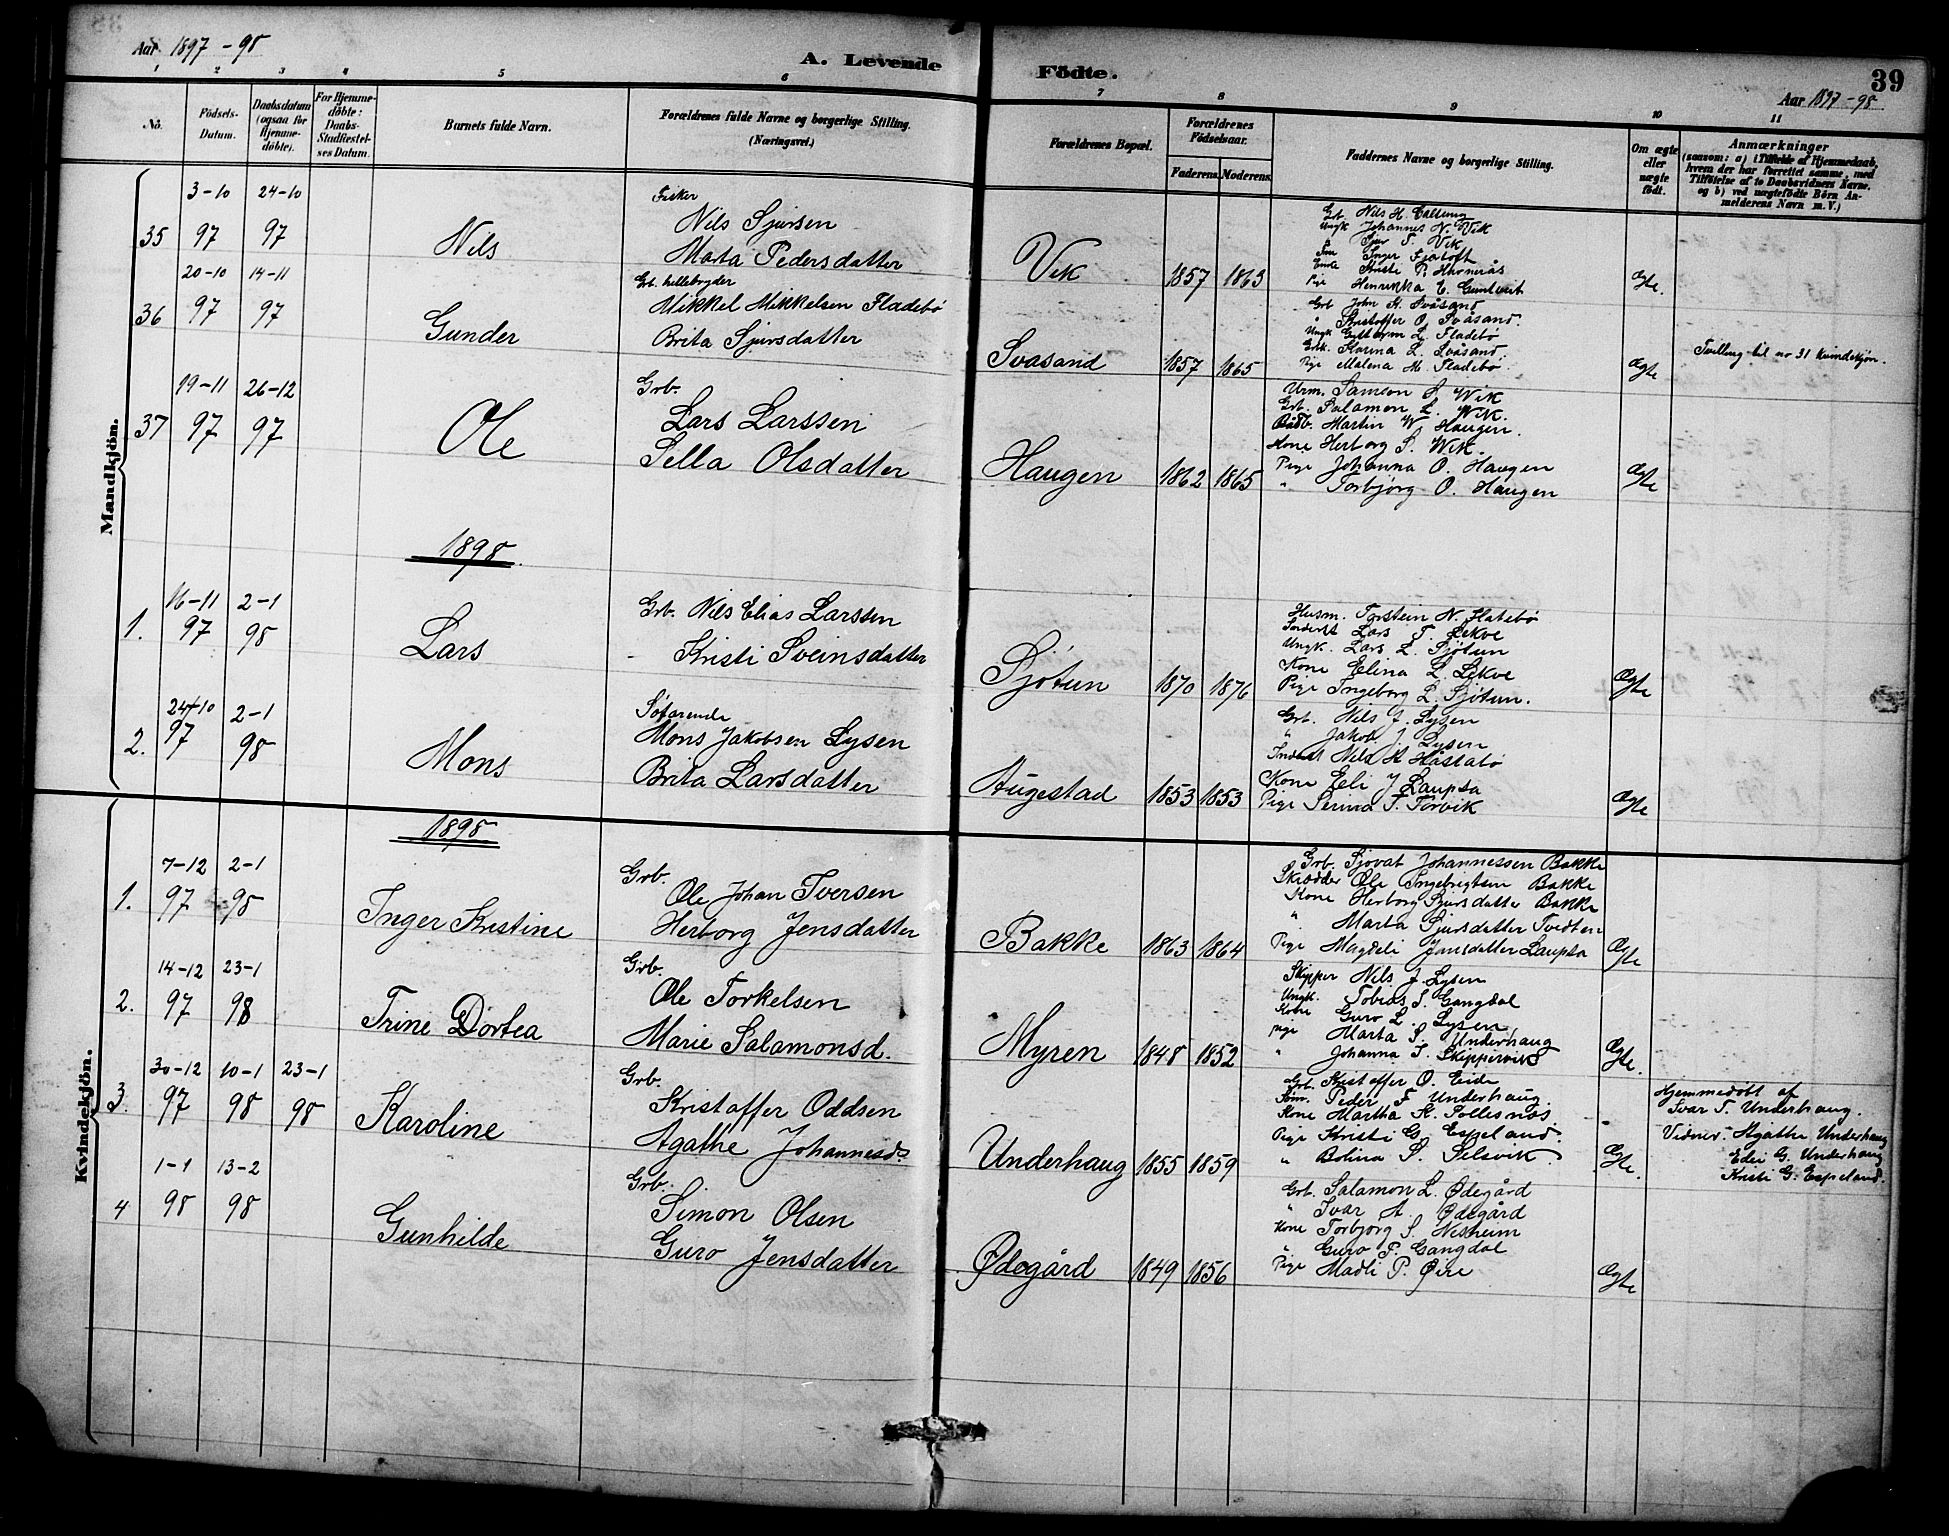 Aar 1897-98
A. Levende Födte.
39
Aar 1897-98
1 2 3 4 5 6 7 8 9 10 11
No.
Födsels-
Datum.
Daabsdatum
(ogsaa for
Hjemme-
döbte).
For Hjemme-
döbte:
Daabs-
Stadfæstel-
ses Datum.
Barnets fulde Navn.
Forældrenes fulde Navne og borgerlige Stilling.
(Næringsvei.)
Forældrenes Bopæl.
Forældrenes
Födselsaar.
Faderens. Moderens.
Faddernes Navne og borgerlige Stilling.
Om ægte
eller
uægte
födt.
Anmærkninger
(saasom: a) i Tilfælde af Hjemmedaab,
hvem der har forrettet samme, med
Tilföielse af to Daabsvidners Navne.
og b) ved uægtefödte Börn An-
melderens Navn m. V.)
Mandkjön.
35
3-10
97
24-10
97
Nils
Fisker
Nils Sjursen
Marta Pedersdatter
Vik
1857 1863
Grb. Nils H.
Ungk Johannes N. Wik
" Sjur T. Vik
Inger
Enke Kristi P.
Pige Henrikka E.
Ægte.
36
20-10
97
14-11
97
Gunder
Grb. hellebryder
Mikkel Mikkelsen Fladebø
Brita Sjursdatter
Svåsand
1857 1865
Grb John K. Svåsand
" Kristoffer O. Svåsand.
Ungk Guttorm L. Fladebø
L. Svåsand.
Pige Malena M. Fladebø.
Ægte
Tvilling til no 31 kvindekjøn.
37
19-11
97
26-12
97
Ole
Grb.
Lars Larssen
Sella Olsdatter
Haugen
1862 1865
Urm. Samson S. Wik
Grb. Salamon L. Wik.
Bådb. Martin W Haugen.
Kone Herborg S. Wik.
Pige Johanna O. Haugen
" Torbjørg O. Haugen
Ægte
1898
1.
16-11
97
2-1
98
Lars
Grb. Nils Elias Larssen
- Kristi Sveinsdatter
Sjøtun
1870 1876
Husm. Torstein N. Flatebø
Inderst Lars T. Lekve
Ungk. Lars L. Sjøtun
Kone Elina L. Lekve
Pige Ingeborg L. Sjøtun.
Ægte
2.
24-10
97
2-1
98
Mons
Søfarende
Mons Jakobsen Lysen
Brita Larsdatter
Augestad
1853 1853
Grb. Nils J. Lysen
" Jakob J Lysen
Inderst Nils H Håstabø
Kone Eli J Laupsa
Pige Serina T. Torvik
Ægte
Kvindekjön.
1898
1.
7-12
97
2-1
98
Inger Kristine
Grb.
Ole Johan Iversen
Herborg Jensdatter
Bakke
1863 1864
Grb. Sjovat Johannessen Bakke
Skrædder Ole Ingebrigtsen Bakke
Kone Herborg Sjursdatter Bakke
" Marta Sjursdatter Tvedten
Pige Magdeli Jensdatter Laupsa
Ægte
2.
14-12
97
23-1
98
Trine Dortea
Grb.
Ole Torkelsen
Marie Salamonsd.
Myren
1848 1852
Skipper Nils J Lysen
Ungk. Tobias S. Gangdal
Kone Guro L. Lysen
pige Marta S. Underhaug
" Johanna T. Skippervik
Ægte.
3.
30-12
97
10-1
98
23-1
98
Karoline
Grb.
Kristoffer Oddsen
Agathe Johannesd.
Underhaug
1855 1859
Grb. Kristoffer O. Eide
Peder F Underhaug.
Kone Martha K. Sollesnæs
Pige Kristi G. Espeland.
" Bolina S. Selsvik.
Ægte.
Hjemmedøbt af
Ivar T. Underhaug.
Vidner: Agathe Underhaug
Eden G. Underhaug
Kristi G. Espeland.
4
1-1
98
13-2
98
Gunhilde
Grb.
Simon Olsen
Guro Jensdatter
Ødegård
1849 1856
Grb. Salamon L. Ødegård
" Ivar A. Ødegård
Kone Torbjørg S. Nesheim
" Guro P. Gangdal
Pige Madli P. Øire
Ægte